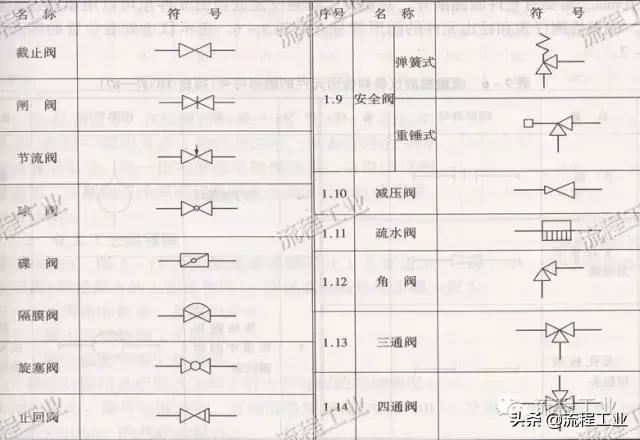 名 称 符 号
截止阀
闸 阀
节流阀
球 阀
碟 阀
隔膜阀
旋塞阀
止回阀
序号 名 称 符 号
1.9 安全阀
弹簧式
重锤式
1.10 减压阀
1.11 疏水阀
1.12 角 阀
1.13 三通阀
1.14 四通阀
流程工业
头条 @流程工业